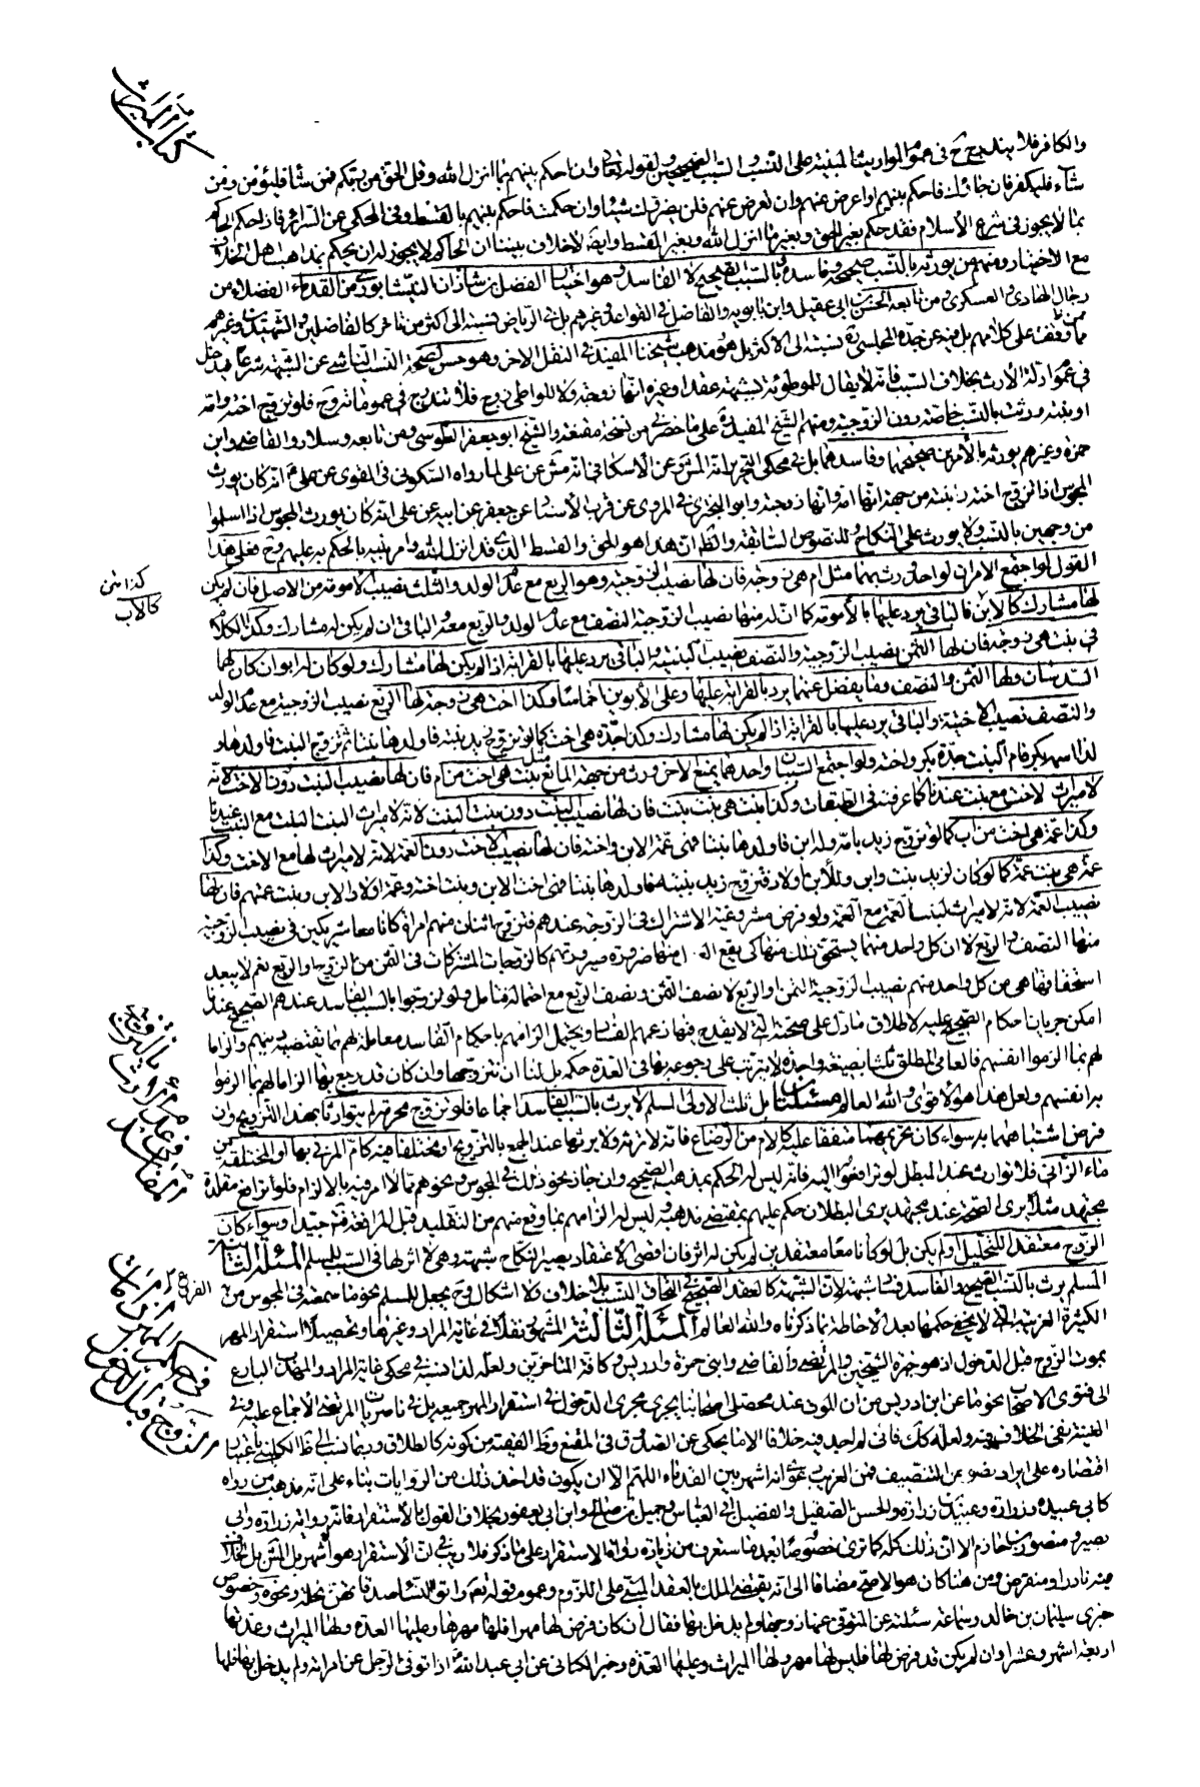 كتاب الميراث
والكافر فلا يندرج في عموم المواريث المبنية على النسب والسبب الصحيحين ولقوله تعالى وان احكم بينهم بما انزل الله وقل الحق من ربكم فمن شاء فليؤمن ومن
شاء فليكفر فان جاؤك فاحكم بينهم او اعرض عنهم وان تعرض عنهم فلن يضروك شيئا وان حكمت فاحكم بينهم بالقسط وفي المحكي عن السرائر فاذا حكم الحاكم
بما لا يجوز في شرع الاسلام فقد حكم بغير الحق وبغير ما انزل الله وبغير القسط وايضا لا خلاف بيننا ان الحاكم لا يجوز له ان يحكم بمذاهب اهل الخلاف
مع الاختيار ومنهم من يورثه بالنسب صحيحه وفاسده وبالسبب الصحيح لا الفاسد وهو اختيار الفضل بن شاذان النيشابوري من القدماء الفضلاء من
رجال الهادي والعسكري ومن تابعه الحسن بن ابي عقيل وابن بابويه والفاضل في القواعد وغيرهم بل في الرياض نسبته الى اكثر من تاخر كالفاضلين والشهيدين وغيرهم
ممن وقفت على كلامهم بل فيه عن جده المجلسي نسبته الى الاكثر بل هو مذهب شيخنا المفيد في النقل الاخر وهو حسن لصحة النسب الناشي عن الشبهة شرعا فيدخل
في عموم ادلة الارث بخلاف السبب فانه لا يقال للموطوئة بشبهة عقد او غيره انها زوجة ولا للواطي زوج فلا تندرج في عموم ما تزوج فلو تزوج اخته وامه
او بنته ورثت بالنسب خاصة دون الزوجية ومنهم الشيخ المفيد على ما حضرني من نسخة مقنعته والشيخ ابو جعفر الطوسي ومن تابعه وسلار والقاضي وابن
حمزة وغيرهم يورثه بالامرين صحيحهما وفاسدهما بل في محكي التحرير انه المشهور وعن الاسكافي انه مشهور عن علي لما رواه السكوني في القوي عن علي انه كان يورث
المجوس اذا تزوج اخته وابنته من جهة انها امه وانها زوجته وابو البختري في المروي عن قرب الاسناد عن جعفر عن ابيه عن علي انه كان يورث المجوس اذا اسلموا
من وجهين بالنسب ولا يورث على النكاح وللنصوص السابقة والظاهر ان هذا هو الحق والقسط الذي قد انزل الله وامر نبيه بالحكم به عليهم وح فعلى هذا
القول لو اجتمع الامران لواحد ورث بهما مثل ام هي زوجة فان لها نصيب الزوجية وهو الربع مع عدم الولد والثلث نصيب الامومة من الاصل فان لم يكن
لها مشارك كالابن فالباقي يرد عليها بالامومة كما ان له منها نصيب الزوجية النصف مع عدم الولد والربع معه والباقي ان لم يكن له مشارك وكذا الكلام
في بنت هي زوجة فان لها الثمن نصيب الزوجية والنصف نصيب البنتية والباقي يرد عليها بالقرابة اذا لم يكن لها مشارك ولو كان له ابوان كان لهما
السدسان ولها الثمن والنصف وما يفضل عنهما يرد بالقرابة عليها وعلى الابوين اخماسا وكذا اخت هي زوجة لها الربع نصيب الزوجية مع عدم الولد
والنصف نصيب الاختية والباقي يرد عليها بالقرابة اذا لم يكن لها مشارك وكذا جدة هي اخت كما لو تزوج زيد بنته فاولدها بنتا ثم تزوج البنت فاولدها و
لدا اسمه بكر فام البنت جدة بكر واخته ولو اجتمع السببان واحدهما يمنع الاخر ورث من جهة المانع مثل بنت هي اخت من ام فان لها نصيب البنت دون الاخت لانه
لا ميراث لاخت مع بنت عندنا كما عرفت في الطبقات وكذا بنت هي بنت بنت فان لها نصيب البنت دون بنت البنت لانه لا ميراث لبنت البنت مع البنت عندنا
وكذا عمة هي اخت من اب كما لو تزوج زيد بامه وله ابن فاولدها بنتا فهي عمة الابن واخته فان لها نصيب الاخت دون العمة لانه لا ميراث لها مع الاخت وكذا
عمة هي بنت عمة كما لو كان لزيد بنت وابن وللابن اولاد فتزوج زيد بنته فاولدها بنتا فهي اخت الابن وبنت اخته وعمة اولاد الابن وبنت عمتهم فان لها
نصيب العمة لانه لا ميراث لبنت العمة مع العمة ولو فرض مشروعية الاشتراك في الزوجة عندهم فتزوج اثنان منهم امراة كانا معا شريكين في نصيب الزوجية
منها النصف والربع لا ان كل واحد منهما يستحق ذلك منها كي يقع ضرورة صيرورتهم كالزوجات المشتركات في الثمن من الزوج او الربع نعم لا يبعد
استحقاقها هي من كل واحد منهم نصيب الزوجية الثمن او الربع لا نصف الثمن ونصف الربع مع احتماله فتامل ولو تزوجوا بالسبب الفاسد عندهم الصحيح عندنا
امكن جريان احكام الصحيح عليه لاطلاق ما دل على صحته التي لا يقدح فيها زعمهم الفساد ويحتمل الزامهم باحكام الفاسد معاملة لهم بما يقتضيه دينهم والزاما
لهم بما الزموا انفسهم فالعامي المطلق ثلاثا بصيغة واحدة لا يترتب على رجوعه بها في العدة حكمه بل لنا ان نتزوجها وان كان قد رجع بها الزاما لهم بما الزموا
به انفسهم ولعل هذا هو الاقوى والله العالم مسئلتان بل ثلث الاولى المسلم لا يرث بالسبب الفاسد اجماعا فلو تزوج محرمة لم يتوارثا بهذا التزويج وان
فرض اشتباههما به سواء كان تحريمها متفقا عليه كالام من الرضاع فانه لا ارث ولا يرثها عند الجمع بالتزويج او مختلفا فيه كام المزني بها او المختلقة من
ماء الزاني فلا توارث عند المبطل لو ترافعوا اليه فانه ليس له الحكم بمذهب الصحيح وان جاز نحو ذلك في المجوس ونحوهم ممن الامر فيه بالالزام فلو ترافع مقلدة
مجتهد مثلا يرى الصحة عند مجتهد يرى البطلان حكم عليهم بمقتضى مذهبه وليس له الزامهم بما وقع منهم من التقليد قبل المرافعة قيد ابدا وسواء كان
الزوج معتقدا للتحليل او لم يكن بل لو كانا معا معتقدين لم يكن له اثر فان اقصى الاعتقاد يصير النكاح شبهة وهي لا اثر لها في السبب للمسلم المسئلة الثانية
المسلم يرث بالنسب الصحيح والفاسد لان الشبهة كالعقد الصحيح في التحاق النسب بلا خلاف ولا اشكال وح يجعل للمسلم نحو ما سمعته في المجوس من الفروع
الكثيرة الغريبة التي لا يخفى حكمها بعد الاحاطة بما ذكرناه والله العالم المسئلة الثالثة المشهور نقلا في غاية المراد وغيرها وتحصيلا استقرار المهر
بموت الزوج قبل الدخول اذ هو خيرة الشيخين والمرتضى والقاضي وابني حمزة وادريس وكافة المتاخرين ولعله لذا نسبه في محكي غاية المراد والمهذب البارع
الى فتوى الاصحاب نحو ما عن ابن ادريس من ان الموت عند محصلي اصحابنا يجري مجرى الدخول في استقرار المهر جميعه بل في ناصريات المرتضى الاجماع عليه وفي
الغنية نفي الخلاف فيه ولعله كذلك فاني لم اجد فيه خلافا الا ما يحكى عن الصدوق في المقنع وظاهر الفقيه من كونه كالطلاق وربما نسب الى ظاهر الكليني باعتبار
اقتصاره على ايراد نصوص التنصيف فمن الغريب دعوى انه اشهر بين القدماء اللهم الا ان يكون قد اخذ ذلك من الروايات بناء على انه مذهب من رواه
كابي عبيدة وزرارة وعبيد بن زرارة والحسن الصيقل والفضيل ابي العباس وجميل بن صالح وابن ابي يعفور بخلاف القول بالاستقرار فانه رواية زرارة وابي
بصير ومنصور بن حازم الا ان ذلك كله كما ترى خصوصا بعد ما ستعرف من زيادة رواة الاستقرار على ما ذكر فلا ريب في ان الاستقرار هو اشهر بل المشهور بل الخلاف
فيه نادر او منقرض ومن هنا كان هو الاصح مضافا الى انه يقتضي الملك بالعقد المبني على اللزوم وعموم قوله تعالى واتوا النساء صدقاتهن نحلة ونحوه وخصوص
خبري سليمان بن خالد وسماعة سئلته عن المتوفى عنها زوجها ولم يدخل بها فقال ان كان فرض لها مهرا فلها مهرها وعليها العدة ولها الميراث وعدتها
اربعة اشهر وعشرا وان لم يكن قد فرض لها فليس لها مهر ولها الميراث وعليها العدة وخبر الكناني عن ابي عبد الله اذا توفى الرجل عن امراته ولم يدخل بها فلها
كذا متن
كالاب
في حكم المهر اذا مات
الزوج قبل الدخول